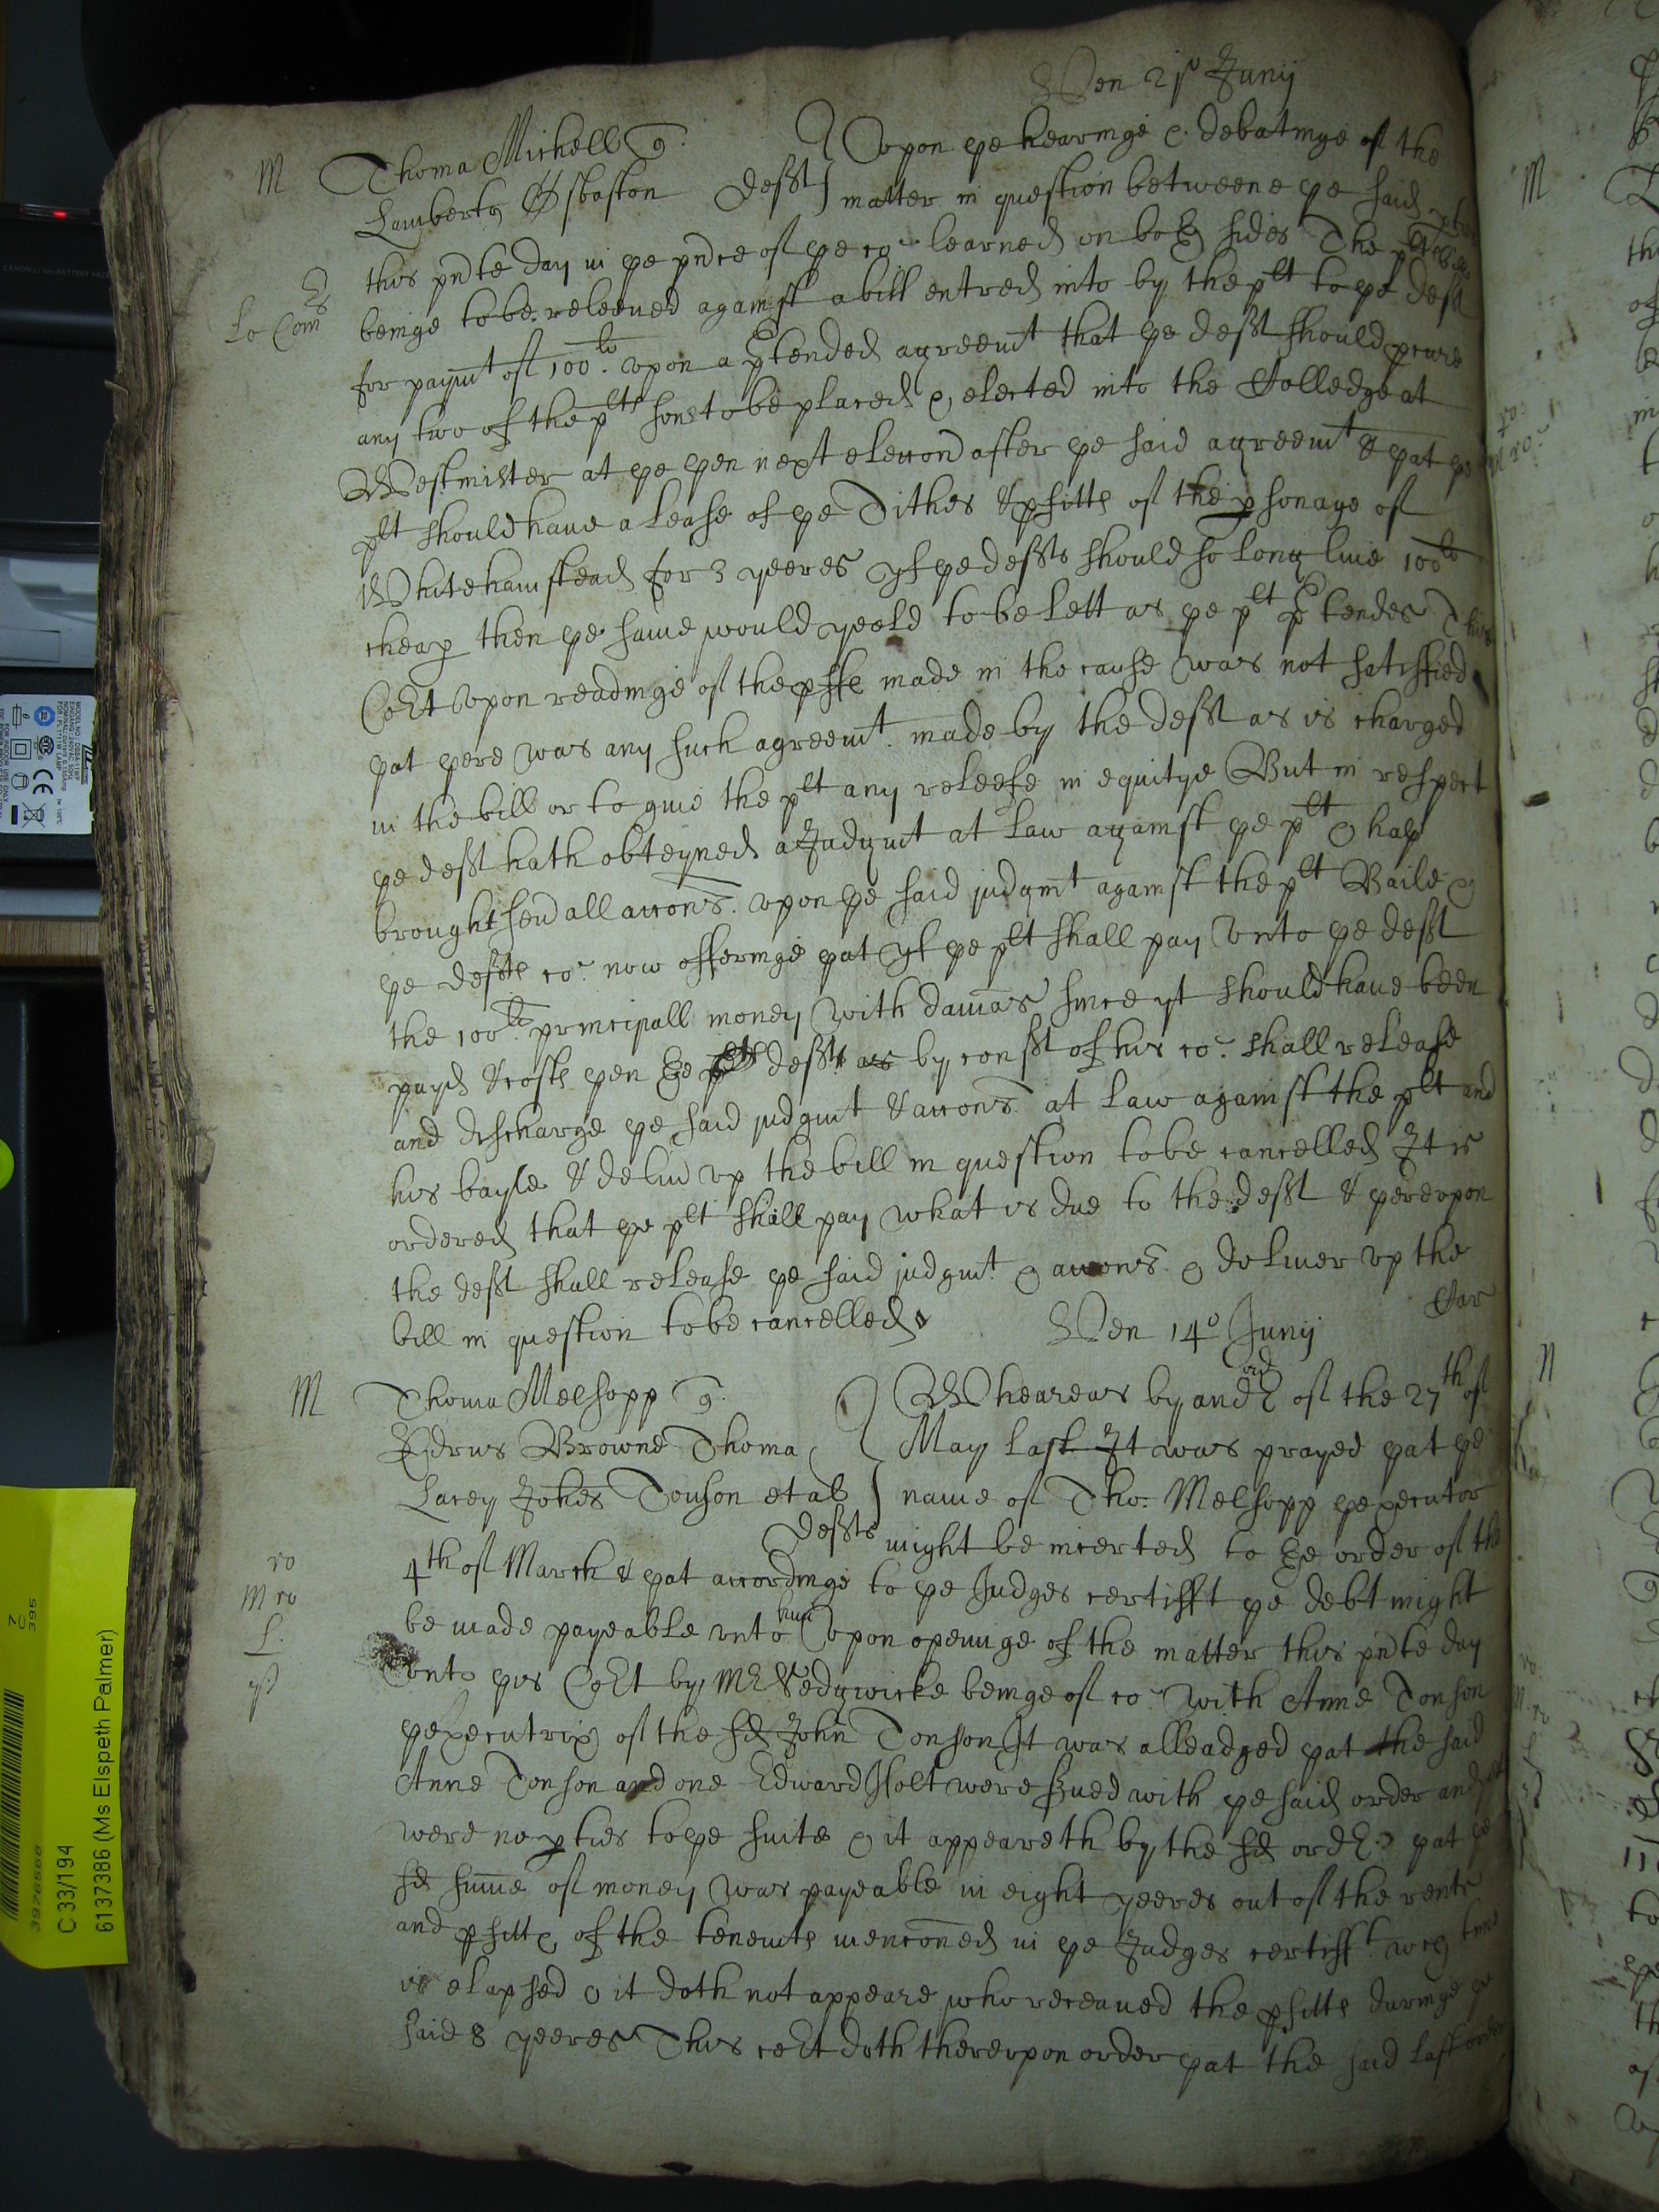 Ven 21o Junij
M Thoma Michell q.
Lamberto Osbaston Defft
Vpon ye hearinge & debatinge of the
matter in question betweene ye said pties
this pnte day in ye pnce of ye co: learned on both sides The plts bill
Lo Com beinge to be releeued against a bill entred into by the plt to ye deft
for paymt of 100li. vpon a ptended agreemt that ye defft should pcure
any two of the plts sons to be placed & elected into the Colledge at
Westminster at ye then next eleccon after ye said agreemt & yat ye
plt should have a lease of ye Tithes & pfitts of the psonage of
Whitehamstead for 3 yeeres yf ye deffts should so long liue 100li
cheap then ye same would yeeld to be lett as ye plt ptendes This
Cort vpon readinge of the pffe made in the cause was not satisfied
yat yere was any such agreemt. made by the defft as is charged
in the bill or to giue the plt any releefe in equitye But in respect
ye defft hath obteyned a Judgmt at law against ye plt & hath
brought seuall accons. vpon ye said judgmt against the plt Baile &
ye deffts co: now offeringe yat yf ye plt shall pay vnto ye defft
the 100li. principall money with damas since yt should haue been
payd & costs yen ye plt defft as by conssl of his co: shall release
and discharge ye said judgmt & accons at law against the plt and
his bayle & deliu vp the bill in question to be cancelled It is
ordered that ye plt shall pay what is due to the defft & yerevpon
the defft shall release ye said judgmt. & accons. & deliuer vp the
bill in question to be cancelled
Car
Ven 14o Junij
M Thoma Melsopp q.
Wheareas by and ord of the 27th of
Browne Thoma
May last It was prayed yat ye
Lacey Johes Tonson et al
name of Tho: Melsopp ye executor
Deffts might be incerted to ye order of the
ro 4th of March & yat accordinge to ye Judges certifft ye debt might
M ro be made payeable vnto him Vpon openinge of the matter this pnte day
vnto yis Cort by Mr Sedgwicke beinge of co: with Anne Tonson
ye executrix of the sd John Tonson It was alleadged yat the said
Anne Tonson and one Edward Holt were serued with ye said order and yet
were no pties to ye suite & it appeareth by the sd order yat ye
sd summe of money was payeable in eight yeeres out of the rents
and pfitts of the tenemts menconed in ye Judges certifft. wch time
is elapsed & it doth not appeare who receaued the pfitts duringe ye
said 8 yeeres This cort doth therevpon order yat the said last order
C 33/194
6137386 (Ms Elspeth Palmer)